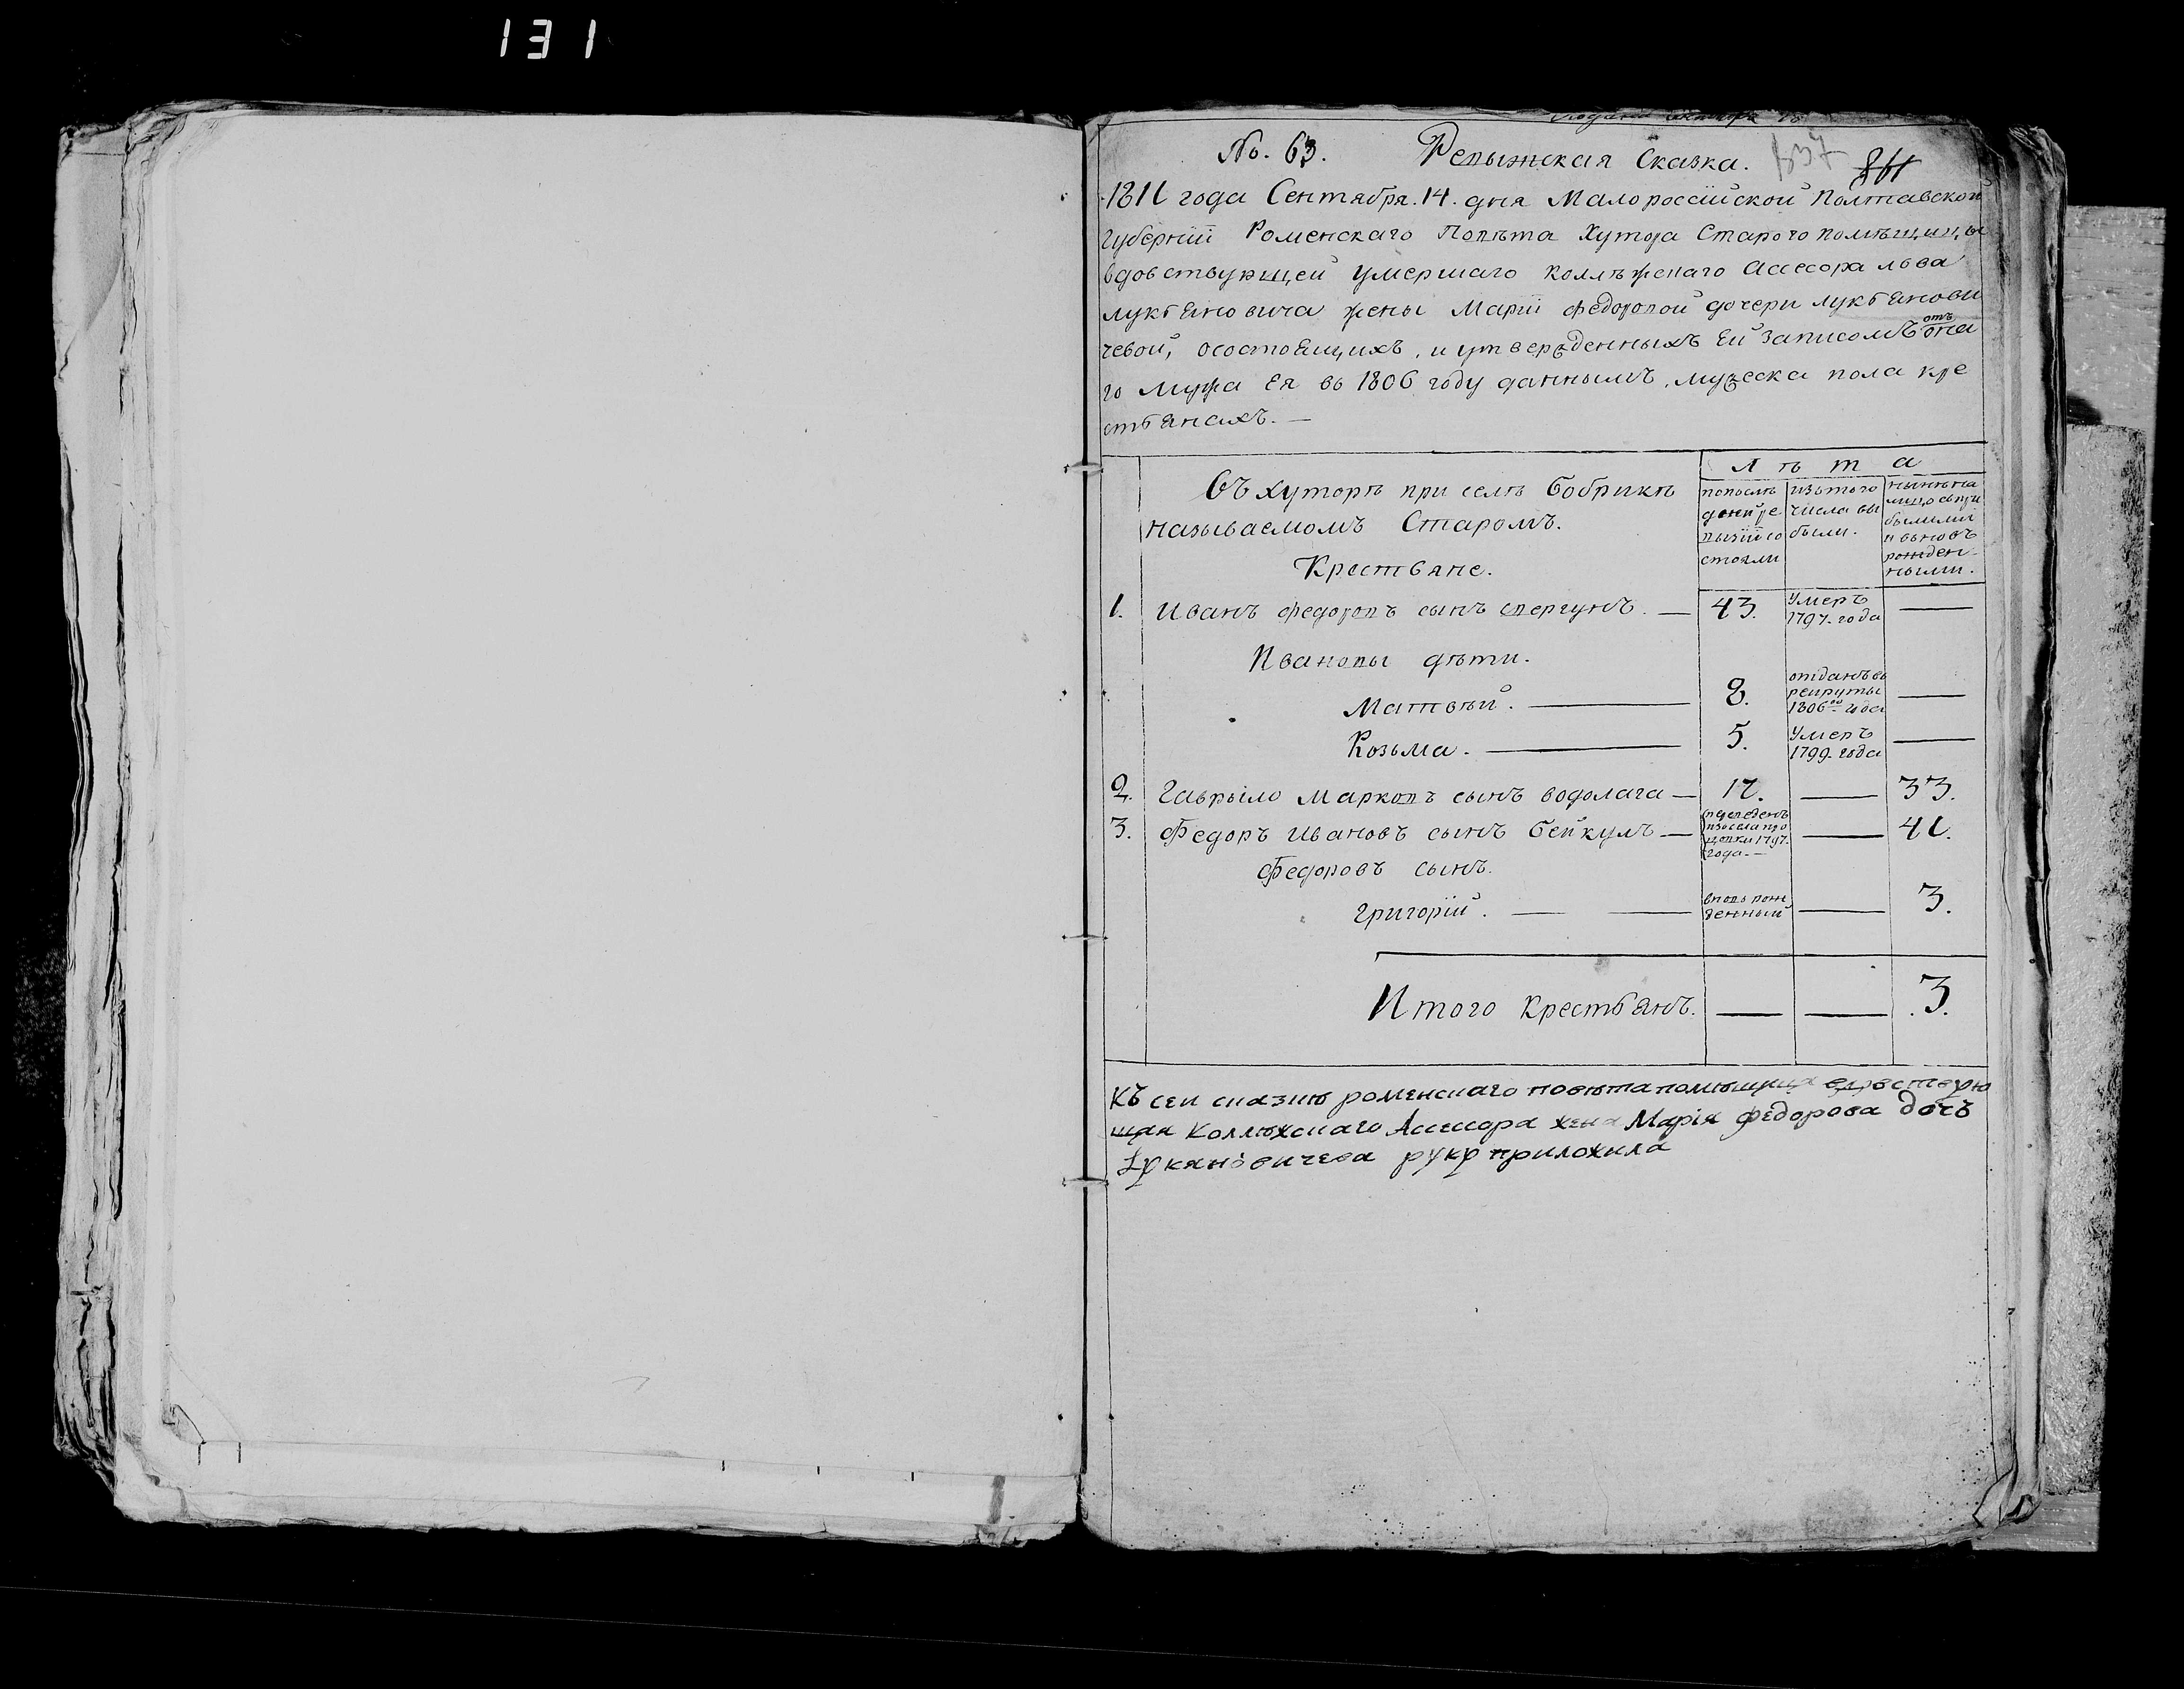 131
No. 63. Ревижская Сказка.
1811 года Сентября. 14. дня Малороссійской Полтавской
Губерніи Роменскаго Повѣта Хутора Старого помѣщицы
вдовствующей умершаго коллѣжскаго Асесора льва
лукьяновича жены Маріи федоровой дочери лукьянови
чевой, осостоящихъ, и утвержденныхъ Ей Записомъ отъ она
го мужа Ея въ 1806 году даннымъ, мужеска пола кре
стьянахъ. —
Лѣта
Въ хуторѣ при селѣ Бобрикѣ
называемомъ Старомъ.
Крестьяне.
попослѣ
дней ре
визіи со
стояли
изътого
числа вы
были.
нынѣ на
лицо съпри
былыми
и вновь
рожден-
ными.
1. Иванъ федоровъ сынъ сверчунъ. — 43. Умеръ 1797. года —
Ивановы дѣти.
Матвѣй. — 8. отданъ въ рекруты 1806го года —
Козьма. — 5. Умеръ 1799. года —
2. Гаврыло Марковъ сынъ водолага — 17. — 33.
3. Федоръ Ивановъ сынъ Бейкулъ — переведенъ изъ села 1797. года. — — 41.
Федоровъ сынъ.
Григорій. — — вновь рож денный — 3.
Итого Крестьянъ. — — 3.
Къ сей сказкѣ роменскаго повѣта помѣщица вдовствую
щая Коллѣжскаго Асессора жена Марія федорова дочь
Лукяновичева руку приложила